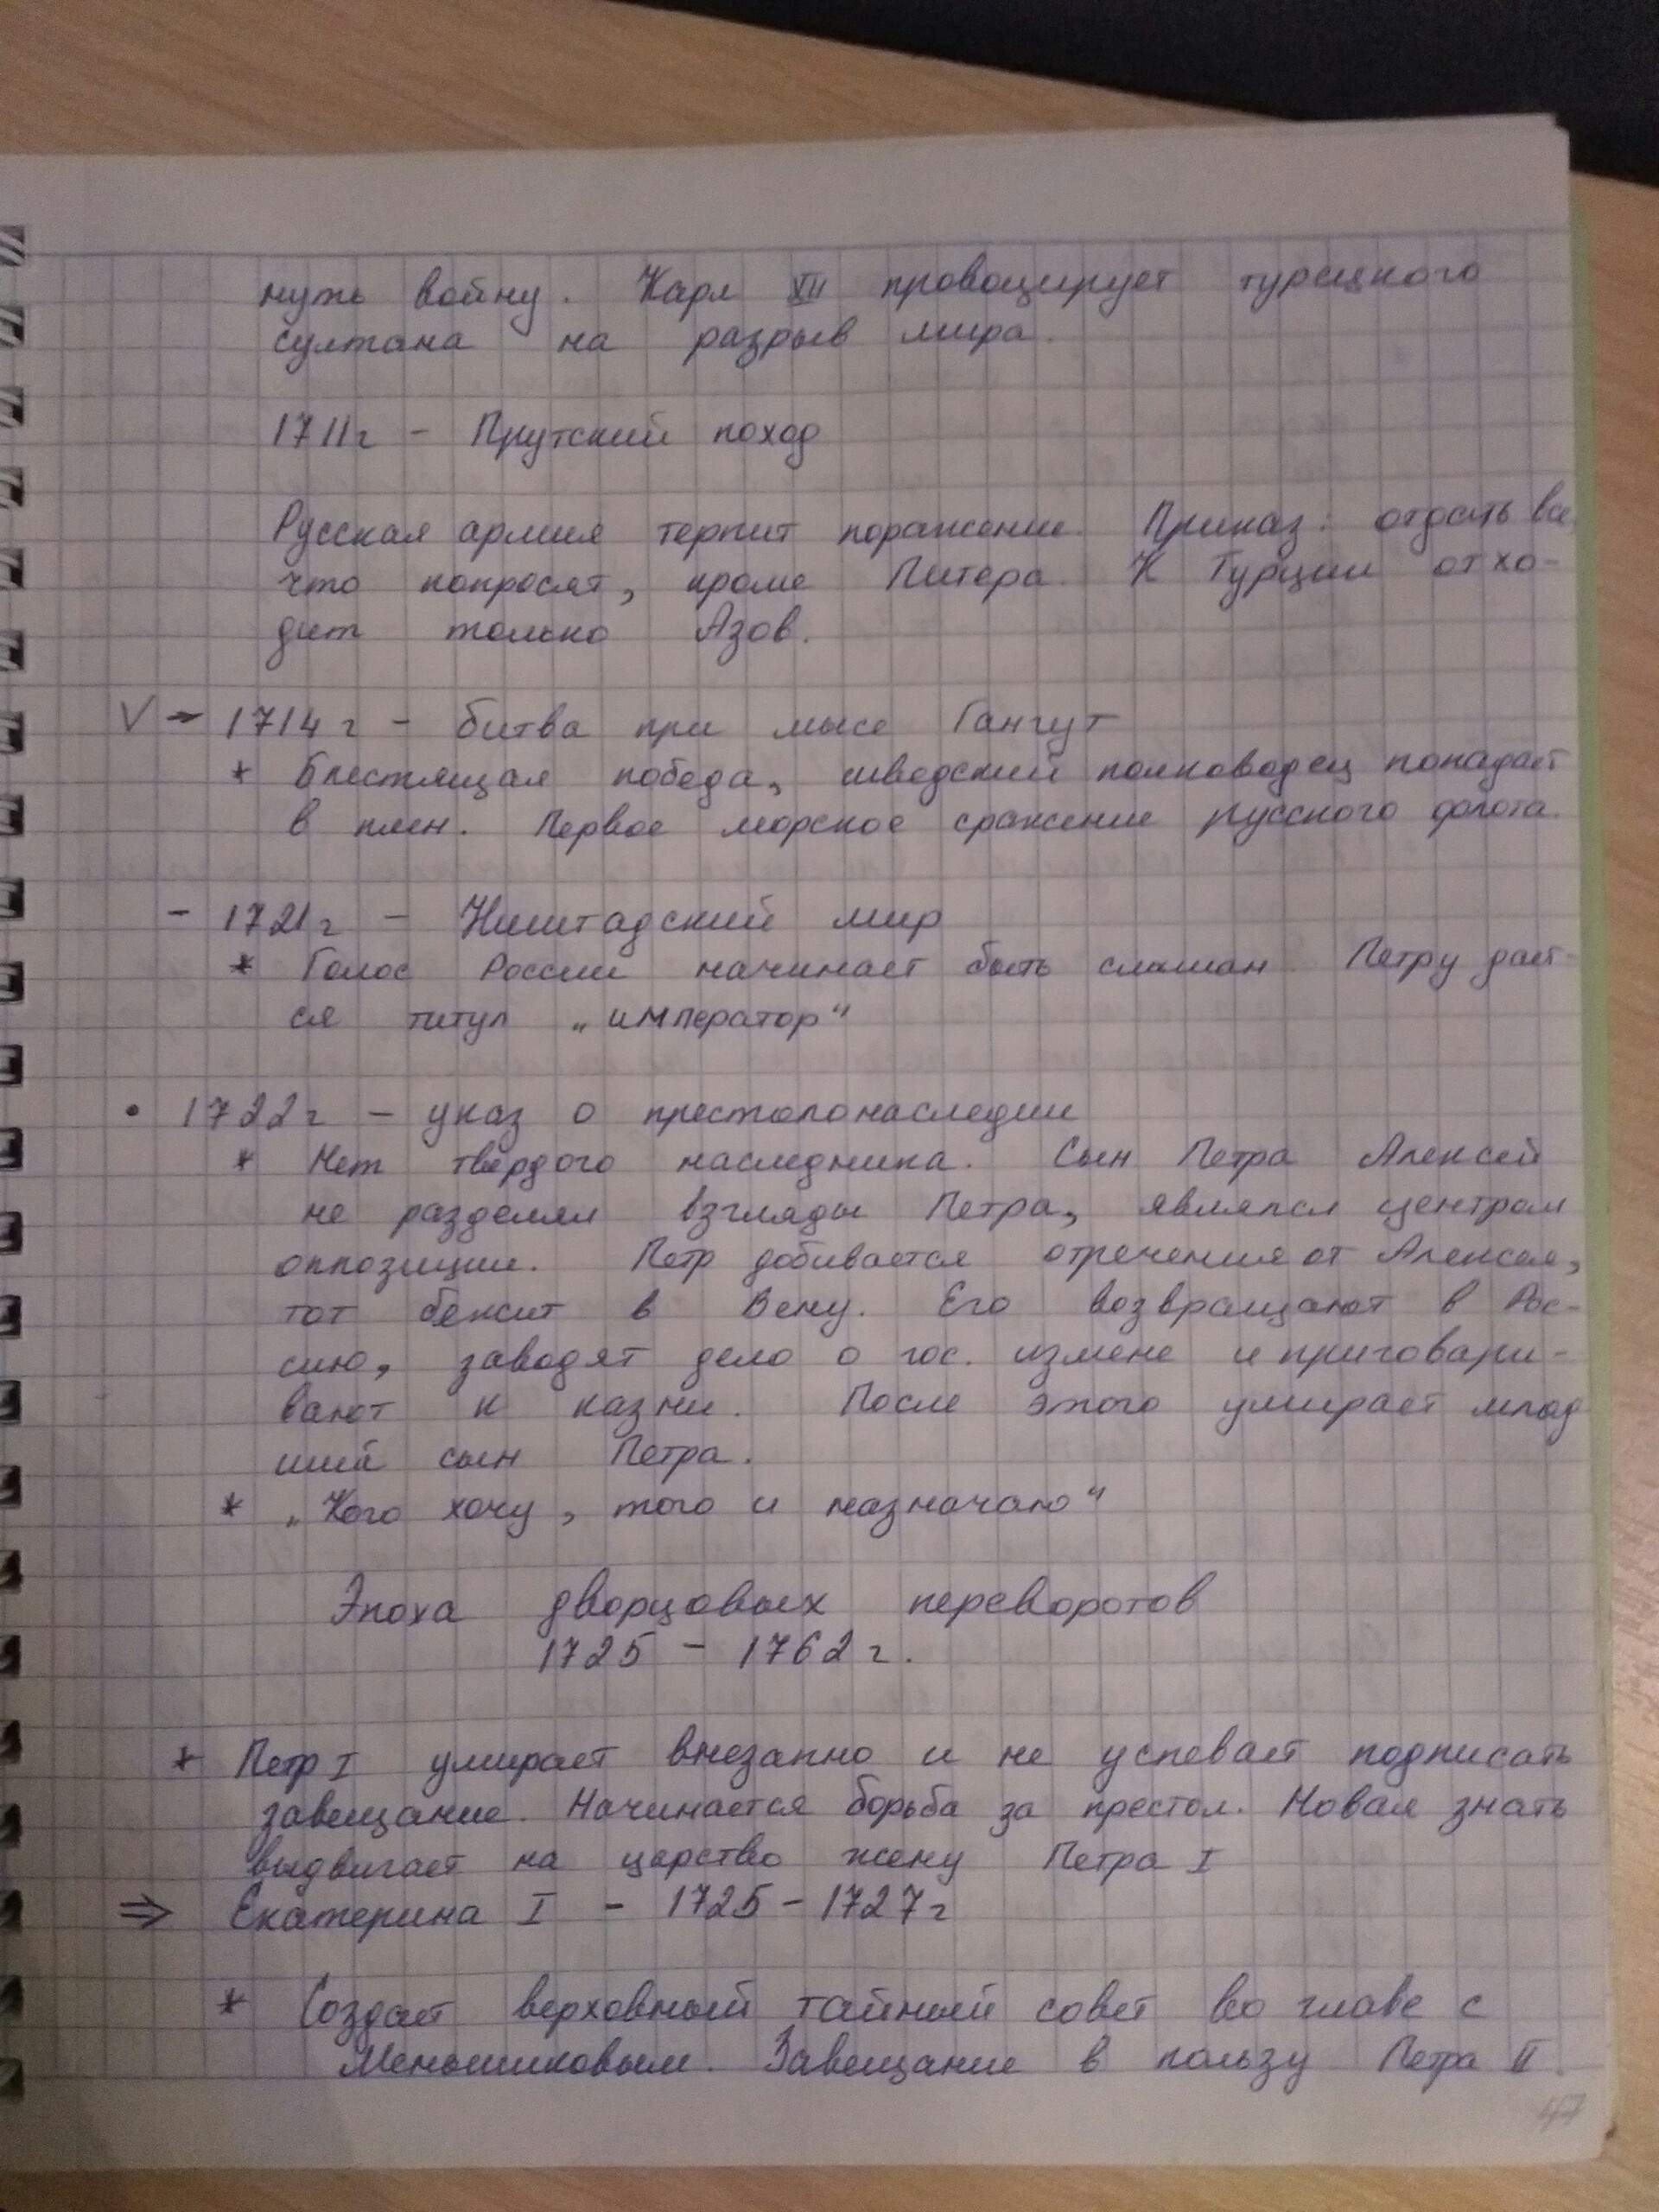 нуть войну. Карл XII провоцирует турецкого
султана на разрыв мира.
1711г - Прутский поход
Русская армия терпит поражение. Приказ: отдать все,
что попросят, кроме Питера. К Турции отхо-
дит только Азов.
V - 1714г - битва при мысе Гангут
* Блестящая победа, шведский полководец попадает
в плен. Первое морское сражение русского флота.
- 1721г - Ништадский мир
* Голос России начинает быть слышан. Петру дает-
ся титул „император“
• 1722г - указ о престолонаследии
* Нет твёрдого наследника. Сын Петра Алексей
не разделял взгляды Петра, являлся центром
оппозиции. Петр добивается отречения от Алексея,
тот бежит в Вену. Его возвращают в Рос-
сию, заводят дело о гос. измене и приговари-
вают к казни. После этого умирает млад
ший сын Петра.
* „Кого хочу, того и назначаю“
Эпоха дворцовых переворотов
1725 - 1762г.
* Петр I умирает внезапно и не успевает подписать
завещание. Начинается борьба за престол. Новая знать
выдвигает на царство жену Петра I
⇒ Екатерина I - 1725 - 1727г
* Создает верховный тайный совет во главе с
Меньшиковым. Завещание в пользу Петра II.
47